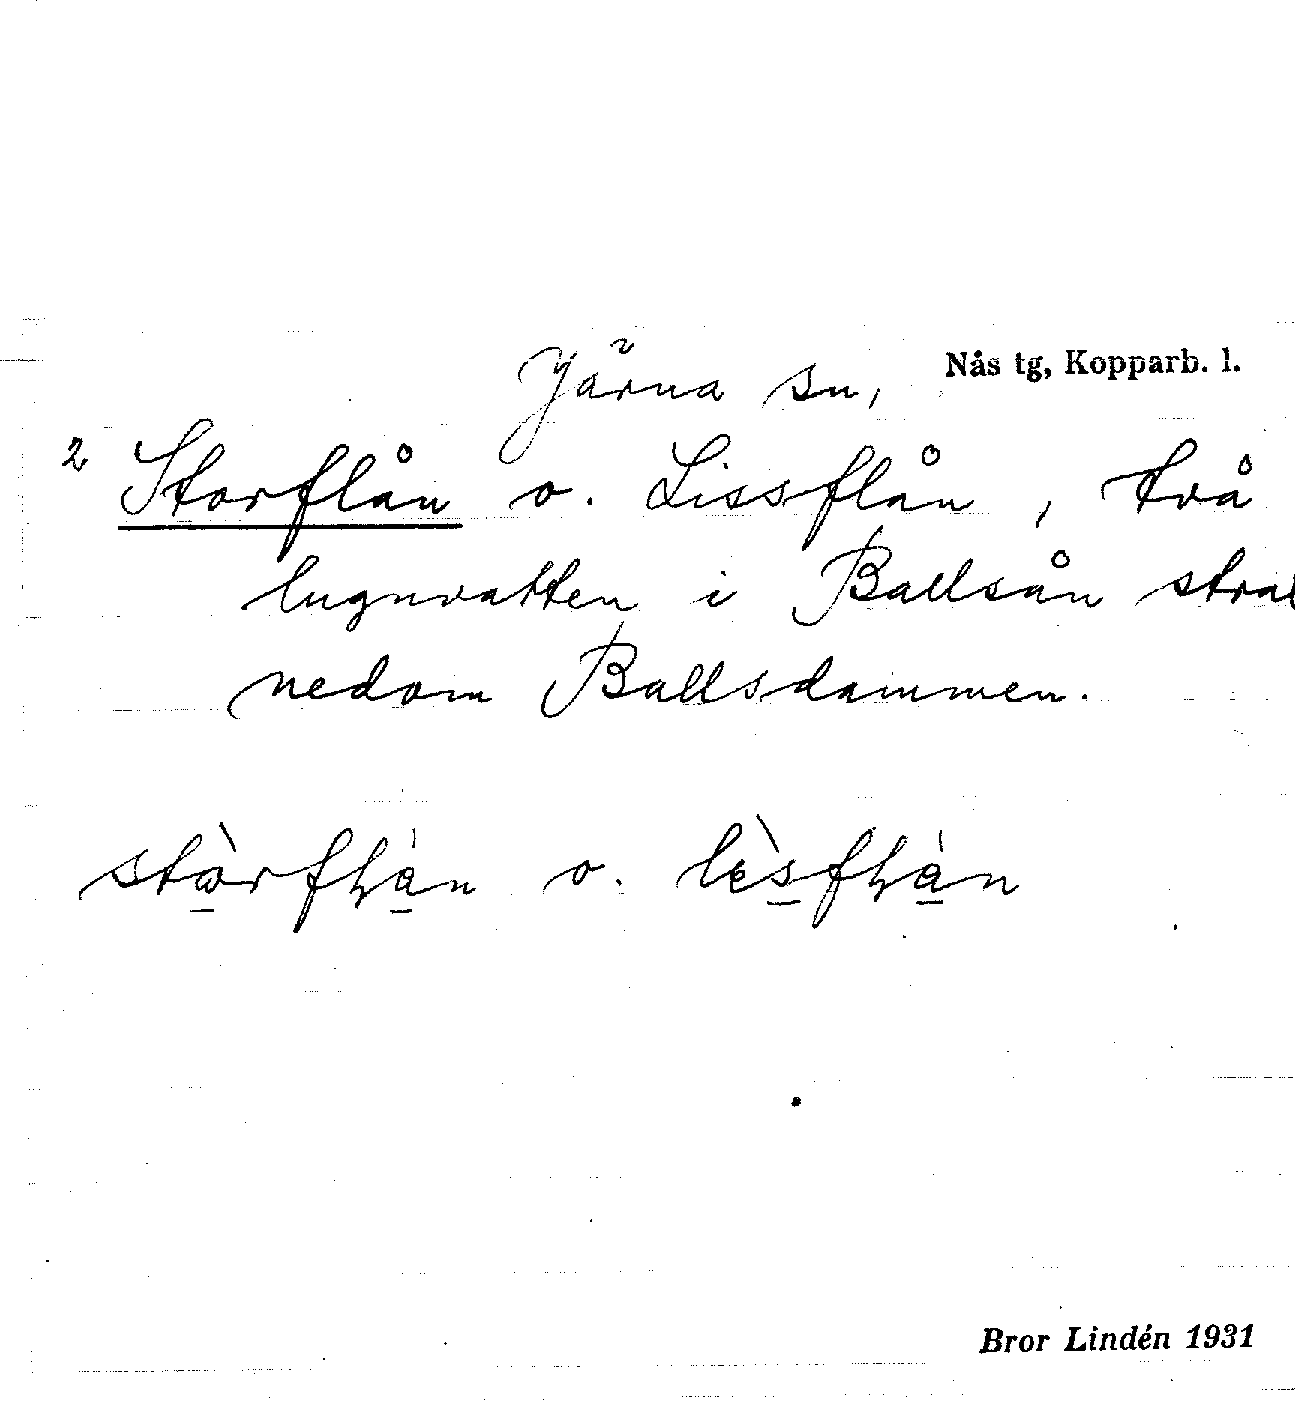 Järna sn, Nås tg, Kopparb. l.
2 Storflån o. Lissflån, två
lugnvatten i Ballsån
nedom Ballsdammen.
o.
Bror Lindén 1931